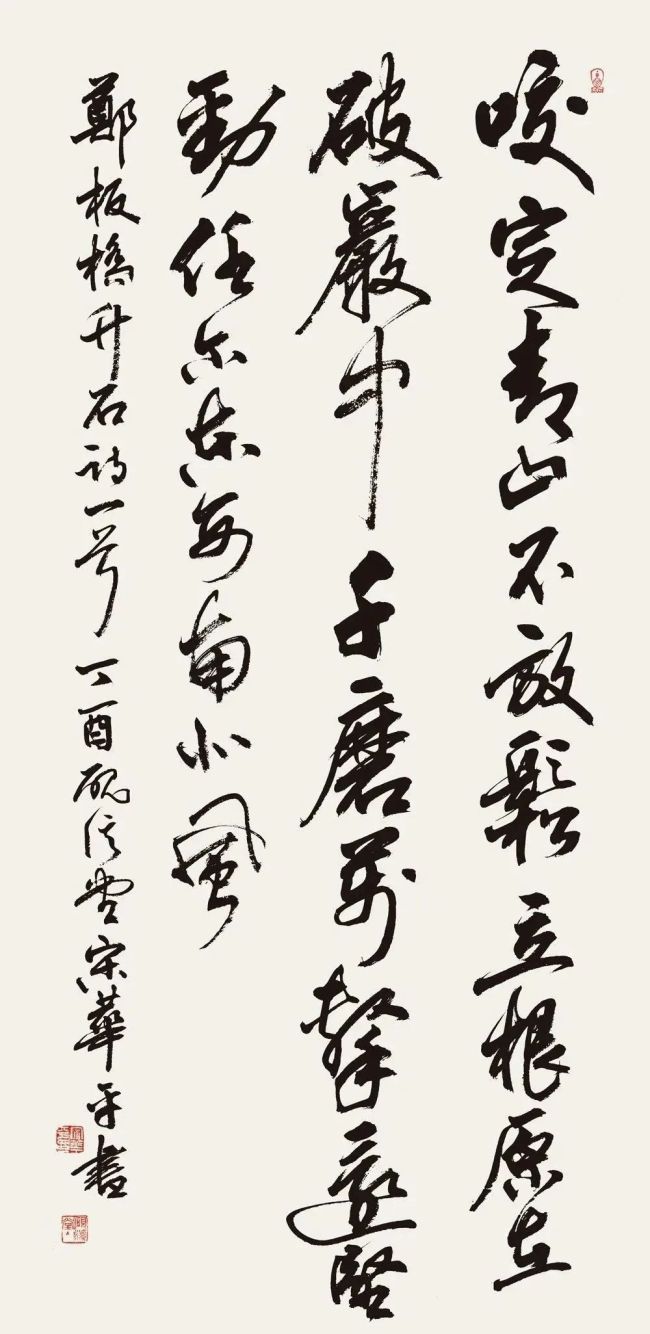 咬定青山不放鬆立根原在
破巖中千磨萬擊還堅
勁任尔东西南北風
鄭板橋竹石诗一首丁酉宋華平書